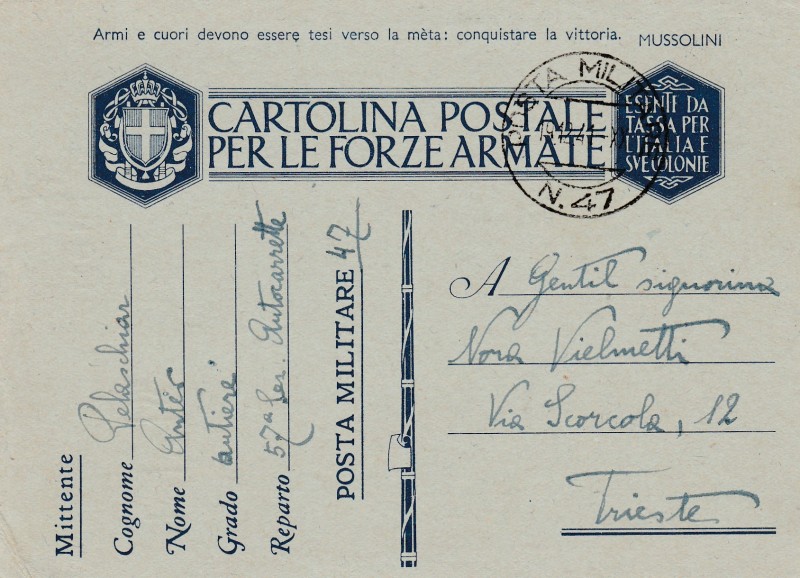 Armi e cuori devono essere tesi verso la mèta: conquistare la vittoria. MUSSOLINI
CARTOLINA POSTALE
PER LE FORZE ARMATE
ESENTE DA
TASSA PER
L'ITALIA E
SVE COLONIE
POSTA MILITARE
N. 47
Mittente
Cognome Pelaschiar
Nome
Grado autiere
Reparto 57a Sez. Autocarrette
POSTA MILITARE 47
A Gentil signorina
Nora Vielmetti
Via Scorcola, 12
Trieste